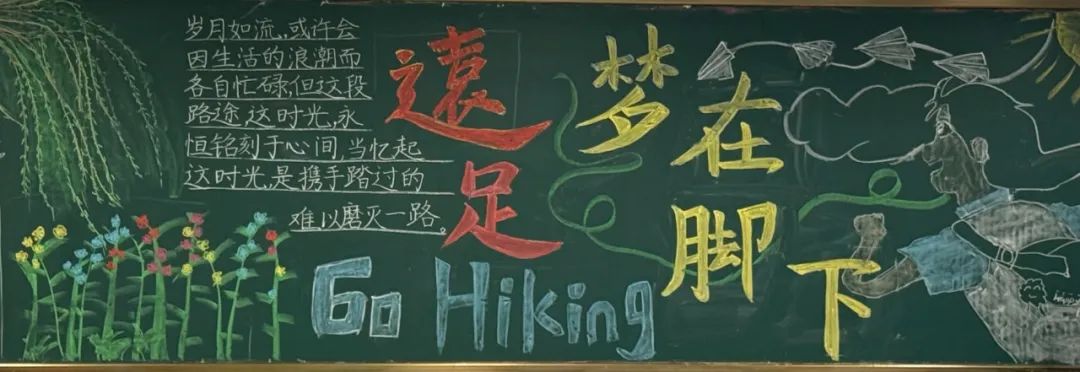 岁月如流,或许会
因生活的浪潮而
各自忙碌,但这段
路途,这时光,永
恒铭刻于心间,当忆起
这时光,是携手踏过的
难以磨灭一路。
遠足
梦在脚下
Go Hiking
happy